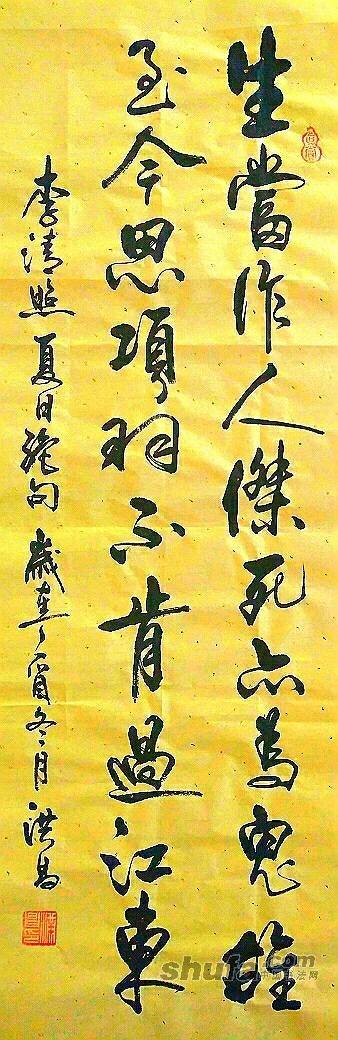 生當作人傑死亦為鬼雄
至今思項羽不肯過江東
李清照夏日絕句歲在丁酉冬月洪昌
shufa.com
中国书法网